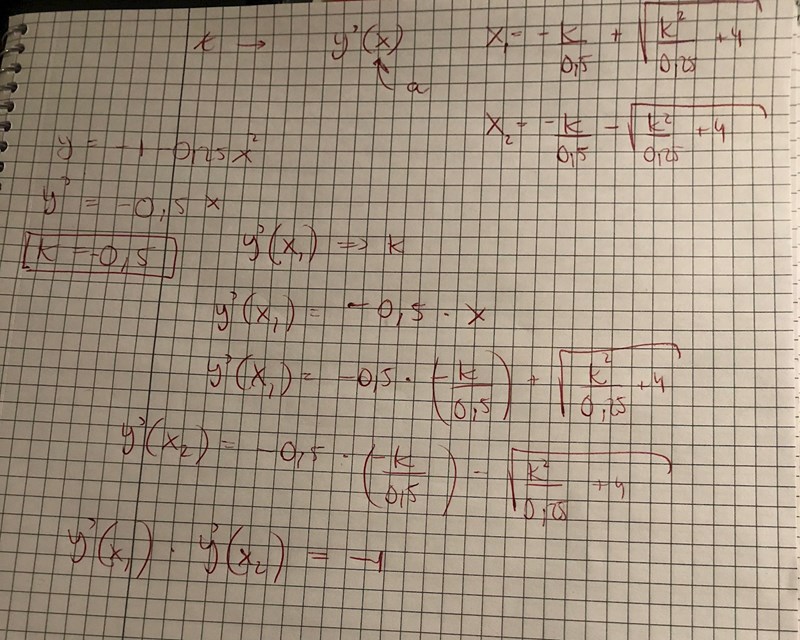 k → y'(x) x₁ = -k/0,5 + √(k²/0,25 + 4)
a
x₂ = -k/0,5 - √(k²/0,25 + 4)
y = -1 - 0,25x²
y' = -0,5 x
k = -0,5 y'(x₁) => k
y'(x₁) = -0,5 · x
y'(x₁) = -0,5 · (-k/0,5) + √(k²/0,25 + 4)
y'(x₂) = -0,5 · (-k/0,5) - √(k²/0,25 + 4)
y'(x₁) · y'(x₂) = -1